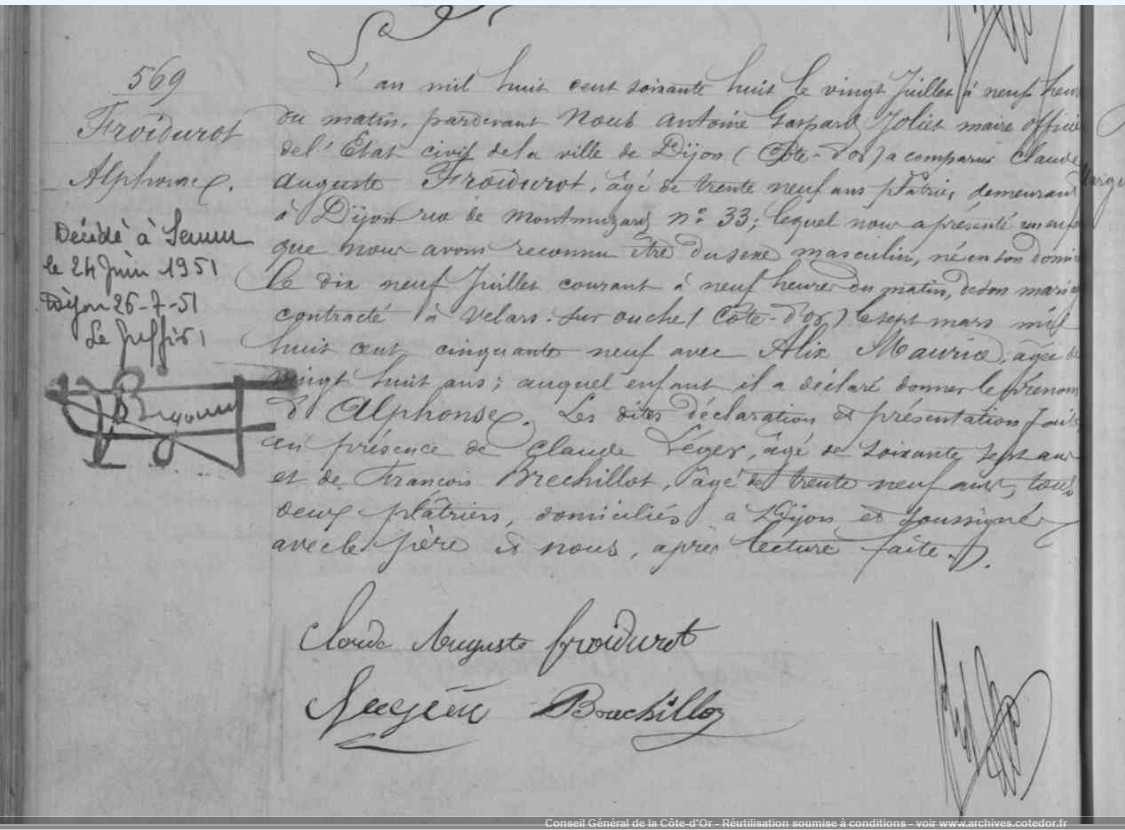 569
Froidurot
Alphonse.
Décédé à Semur
le 24 Juin 1951
Dijon 26-7-51
Le Greffier
L'an mil huit cent soixante huit le vingt Juillet à neuf heu
du matin, pardevant Nous Antoine Gaspard Joliet maire officie
de l'Etat civil de la ville de Dijon (Côte-d'or) a comparu Claude
Auguste Froidurot, âgé de trente neuf ans plâtrier, demeurant
à Dijon rue de Montmuzard n° 33; lequel nous a présenté un enfa
que nous avons reconnu être du sexe masculin, né en son domi
le dix neuf Juillet courant à neuf heures du matin, de son maria
contracté à Velars-sur-ouche (Côte-d'or) le sept mars mil
huit cent cinquante neuf avec Alix Maurice, âgée de
vingt huit ans; auquel enfant il a déclaré donner le prénom
d'Alphonse. Les dites déclaration et présentation faite
en présence de Claude Léger, âgé de soixante sept ans
et de François Brechillot, âgé de trente neuf ans, tous
deux plâtriers, domiciliés à Dijon et soussignés
avec le père et nous, après lecture faite.
Claude Auguste froidurot
Brechillot
Conseil Général de la Côte-d'Or - Réutilisation soumise à conditions - voir www.archives.cotedor.fr